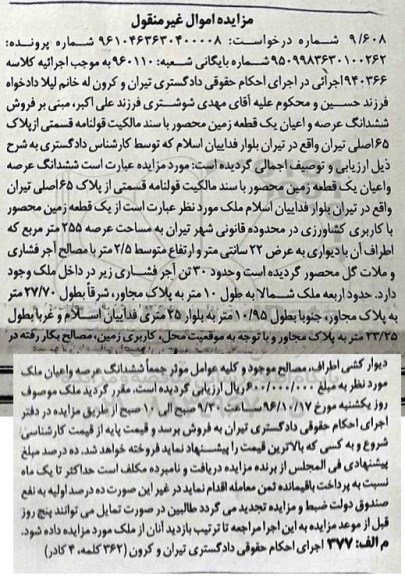 مزایده اموال غیر منقول
۹/۶۰۸ شماره درخواست: ۹۶۱۰۴۶۳۶۳۰۴۰۰۰۰۸ شماره پرونده:
۹۵۰۹۹۸۳۶۳۰۱۰۰۲۶۲ شماره بایگانی شعبه: ۹۶۰۱۱۰ به موجب اجرائیه کلاسه
۹۴۰۳۶۶ اجرائی در اجرای احکام حقوقی دادگستری تیران و کرون له خانم لیلا دادخواه
فرزند حسین و محکوم علیه آقای مهدی شوشتری فرزند علی اکبر، مبنی بر فروش
ششدانگ عرصه و اعیان یک قطعه زمین محصور با سند مالکیت قولنامه قسمتی از پلاک
۶۵ اصلی تیران واقع در تیران بلوار فداییان اسلام که توسط کارشناس دادگستری به شرح
ذیل ارزیابی و توصیف اجمالی گردیده است: مورد مزایده عبارت است ششدانگ عرصه
واعیان یک قطعه زمین محصور با سند مالکیت قولنامه قسمتی از پلاک ۶۵ اصلی تیران
واقع در تیران بلوار فداییان اسلام ملک مورد نظر عبارت است از یک قطعه زمین محصور
با کاربری کشاورزی در محدوده قانونی شهر تیران به مساحت عرصه ۲۵۵ متر مربع که
اطراف آن با دیواری به عرض ۲۲ سانتی متر و ارتفاع متوسط ۲/۵ متر با مصالح آجر فشاری
و ملات گل محصور گردیده است وحدود ۳۰ تن آجر فشاری زیر در داخل ملک وجود
دارد. حدود اربعه ملک شمالا به طول ۱۰ متر به پلاک مجاور، شرقاً بطول ۲۷/۷۰ متر
به پلاک مجاور، جنوبا بطول ۱۰/۹۵ متر به بلوار ۲۵ متری فداییان اسلام و غربا بطول
۲۳/۲۵ متر به پلاک مجاور و با توجه به موقعیت محل، کاربری زمین، مصالح بکار رفته در
دیوار کشی اطراف، مصالح موجود و کلیه عوامل موثر جمعاً ششدانگ عرصه واعیان ملک
مورد نظر به مبلغ ۶۰۰/۰۰۰/۰۰۰ ریال ارزیابی گردیده است. مقرر گردید ملک موصوف
روز یکشنبه مورخ ۹۶/۱۰/۱۷ ساعت ۹/۳۰ صبح الی ۱۰ صبح از طریق مزایده در دفتر
اجرای احکام حقوقی دادگستری تیران به فروش برسد و قیمت پایه از قیمت کارشناسی
شروع و به کسی که بالاترین قیمت را پیشنهاد نماید فروخته خواهد شد. ده درصد مبلغ
پیشنهادی فی المجلس از برنده مزایده دریافت و نامبرده مکلف است حداکثر تا یک ماه
نسبت به پرداخت باقیمانده ثمن معامله اقدام نماید در غیر این صورت ده درصد اولیه به نفع
صندوق دولت ضبط و مزایده تجدید می گردد طالبین در صورت تمایل می توانند پنج روز
قبل از موعد مزایده به این اجرا مراجعه تا ترتیب بازدید آنان از ملک مورد مزایده داده شود.
م الف: ۳۷۷ اجرای احکام حقوقی دادگستری تیران و کرون (۳۶۲ کلمه، ۴ کادر)